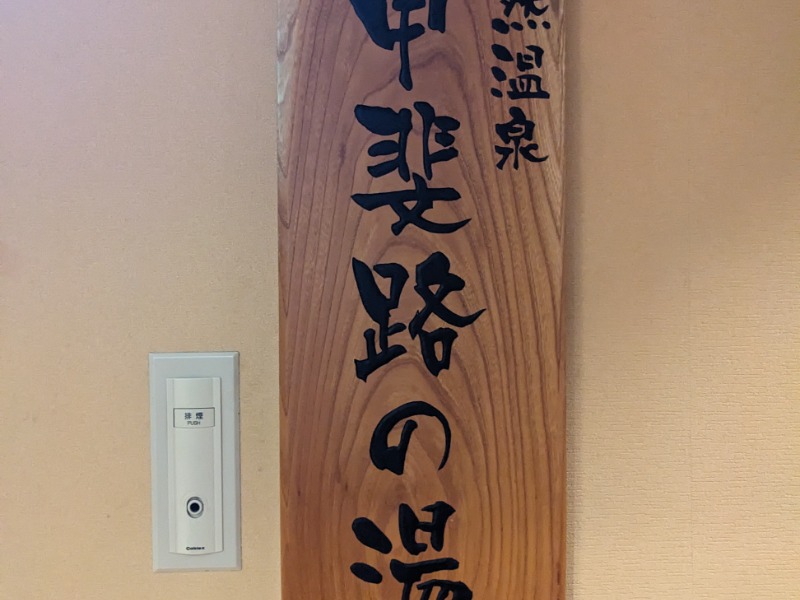 然温泉
甲斐路の湯
排煙
PUSH